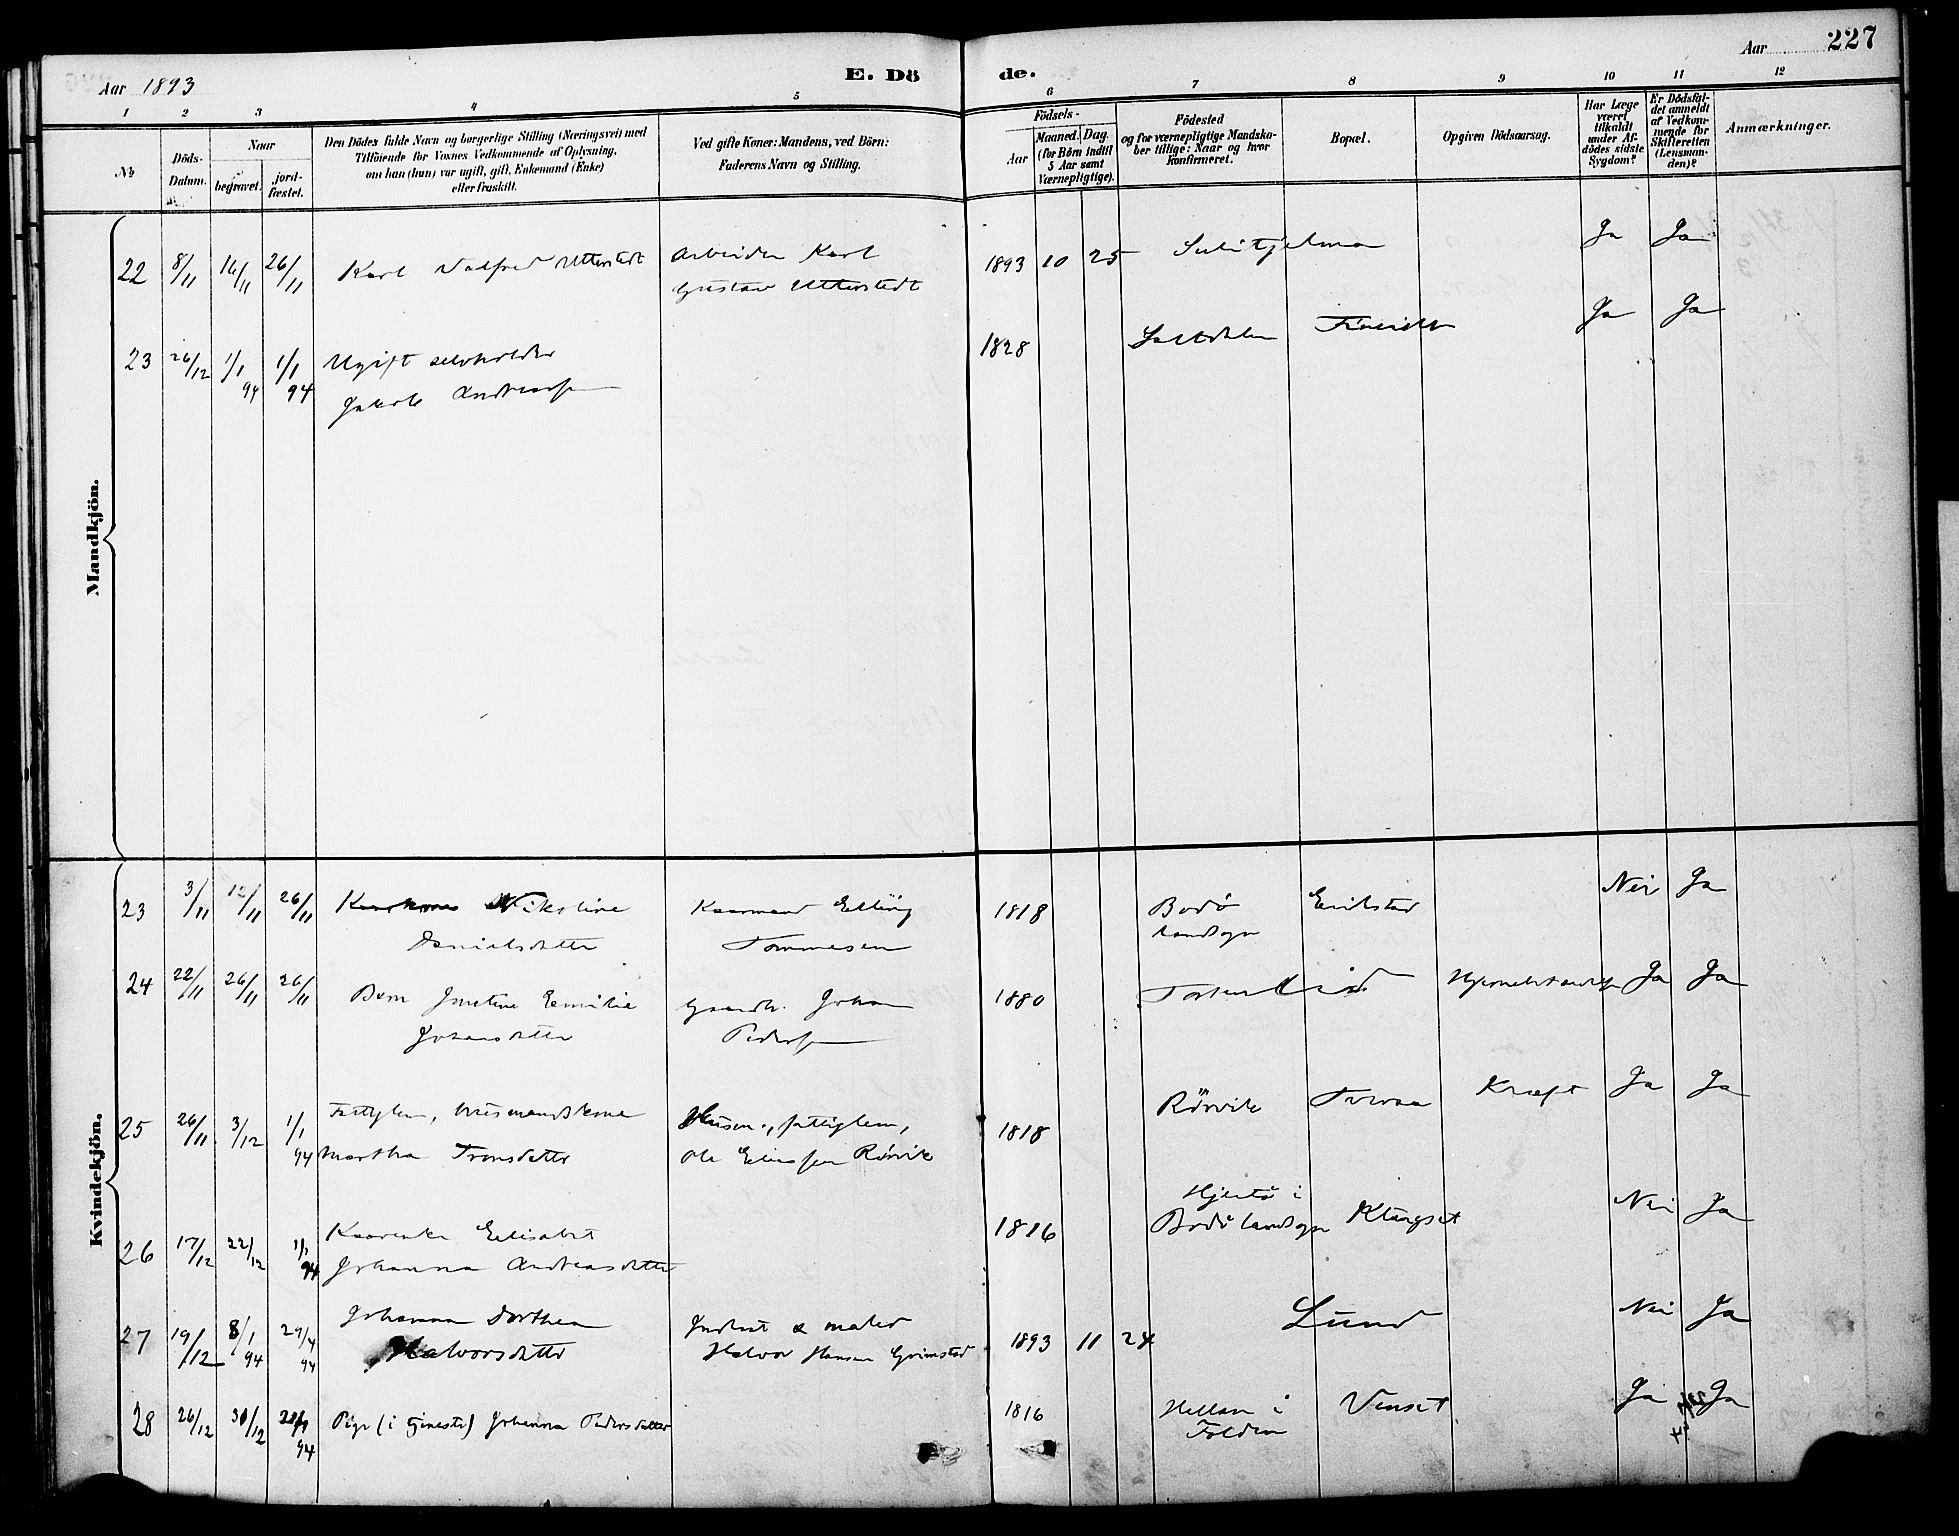 Aar 1893
E. Dö
de.
Aar 227
1 2 3 4 5 6 7 8 9 10 11 12
No
Döds-
Datum.
Naar
begravet.
jord-
fæstet.
Den Dödes fulde Navn og borgerlige Stilling (Næringsvei) med
Tilföiende for Voxnes Vedkommende af Oplysning,
om han (hun) var ugift, gift, Enkemand (Enke)
eller fraskilt.
Ved gifte Koner: Mandens, ved Börn:
Faderens Navn og Stilling.
Födsels-
Aar
Maaned. Dag.
(for Börn indtil
5 Aar samt
Værnepligtige).
Födested
og for værnepligtige Mandska-
ber tillige: Naar og hvor
konfirmeret.
Bopæl.
Opgiven Dödsaarsag.
Har Læge
været
tilkaldt
under Af-
dödes sidste
Sygdom?
Er Dödsfal-
det anmeldt
af Vedkom-
mende for
Skifteretten
(Lensman-
den)?
Anmærkninger.
Mandkjön.
22 8/11 16/11 26/11 Karl Valfred Utterstedt Arbeider Karl 1893 10 25 Sulitjelma Ja Ja
Gustav Utterstedt
23 26/12 1/1 94 1/1 94 Ugift selvholder 1828 Saltdalen Finneidet Ja Ja
Jakob Andreassen
Kvindekjön.
23 3/11 12/11 26/11 Kaarkone Nikoline Kaarmand Elling 1818 Bodö Erikstad Nei Ja
Danielsdatter Tommesen landsogn
24 22/11 26/11 26/11 Barn Justine Emilie Gaardbr. Johan 1880 Ja Ja
Johansdatter Pedersen
25 26/11 3/12 1/1 94 Fattiglem, husmandskone Husm., fattiglem, 1818 Rörvik Tveraa Kræft Ja Ja
Martha Tronsdatter Ole Eliassen Rörvik
26 17/12 22/12 1/1 94 Kaarenke Elisabet 1816 Hjertö i Klungset Nei Ja
Johanna Andreasdatter Bodö landsogn
27 19/12 8/1 94 29/4 94 Johanna Dorthea Inderst & maler 1893 11 24 Lund Nei Ja
Halvorsdatter Halvor Hansen Grimstad
28 26/12 30/12 94 Pige (i tjeneste) Johanna Pedersdatter 1816 Hellan i Venset Ja Ja
Folden